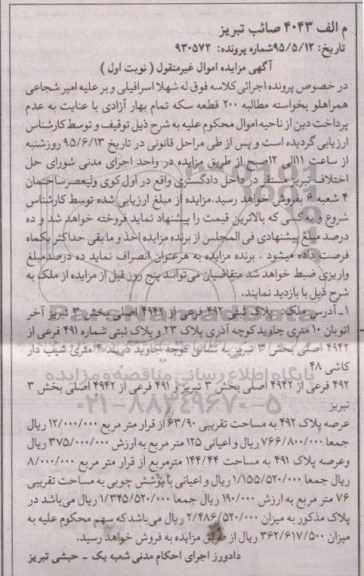 م الف ۴۰۴۳ صائب تبریز
تاریخ: ۹۵/۵/۱۲ شماره پرونده: ۹۳۰۵۷۲
آگهی مزایده اموال غیرمنقول ( نوبت اول )
در خصوص پرونده اجرائی کلاسه فوق له شهلا اسرافیلی و بر علیه امیر شجاعی
همراهلو بخواسته مطالبه ۲۰۰ قطعه سکه تمام بهار آزادی با عنایت به عدم
پرداخت دین از ناحیه اموال محکوم علیه به شرح ذیل توقیف و توسط کارشناس
ارزیابی گردیده است و پس از طی مراحل قانونی در تاریخ ۹۵/۶/۱۳ روز شنبه
از ساعت ۱۱ الی ۱۲ صبح از طریق مزایده در واحد اجرای مدنی شورای حل
اختلاف تبریز مستقر در داخل دادگستری واقع در اول کوی ولیعصر ساختمان
۴ شعبه ۶ بفروش خواهد رسید. مزایده از مبلغ ارزیابی شده توسط کارشناس
شروع و به کسی که بالاترین قیمت را پیشنهاد نماید فروخته خواهد شد و ده
درصد مبلغ پیشنهادی فی المجلس از برنده مزایده اخذ و ما بقی حداکثر یکماه
فرصت داده میشود . برنده مزایده به هر عنوان انصراف نماید ده درصد مبلغ
واریزی ضبط خواهد شد متقاضیان می‌توانند پنج روز قبل از مزایده از ملک به
شرح ذیل با بازدید نمایند.
۱_آدرس ملک: پلاک ثبتی ۴۹۲ فرعی از ۴۹۴۲ اصلی بخش ۳ تبریز آخر
اتوبان ۱۰ متری جاوید کوچه آذری پلاک ۲۳ و پلاک ثبتی شماره ۴۹۱ فرعی از
۴۹۴۲ اصلی بخش ۳ تبریز به نشانی کوچه جاوید دیبه ۴ متری شیب دار
کاشی ۴۸
۴۹۲ فرعی از ۴۹۴۲ اصلی بخش ۳ تبریز و ۴۹۱ فرعی از ۴۹۴۲ اصلی بخش ۳
تبریز
عرصه پلاک ۴۹۲ به مساحت تقریبی ۶۳/۹۰ از قرار متر مربع ۱۲/۰۰۰/۰۰۰ ریال
جمعا ۷۶۶/۸۰۰/۰۰۰ ریال و اعیانی ۱۲۵ متر مربع به ارزش ۳۷۵/۰۰۰/۰۰۰ ریال
و عرصه پلاک ۴۹۱ به مساحت ۱۴۴/۴۴ مترمربع از قرار متر مربع ۸/۰۰۰/۰۰۰
ریال جمعا ۱/۱۵۵/۵۲۰/۰۰۰ ریال و اعیانی با پوشش چوبی به مساحت تقریبی
۷۶ متر مربع به ارزش ۱۹۰/۰۰۰ ریال جمعا ۱/۳۴۵/۵۲۰/۰۰۰ ریال می‌باشد در
پلاک مذکور به میزان ۲/۴۸۶/۵۲۰/۰۰۰ ریال می‌باشد که سهم محکوم علیه به
میزان ۳۶۲/۶۱۷/۵۰۰ ریال از طریق مزایده به فروش خواهد رسید.
دادورز اجرای احکام مدنی شعبه یک - حبشی تبریز
پایگاه اطلاع رسانی مناقصه و مزایده
۰۲۱-۸۸۳۴۹۶۷۰-۵